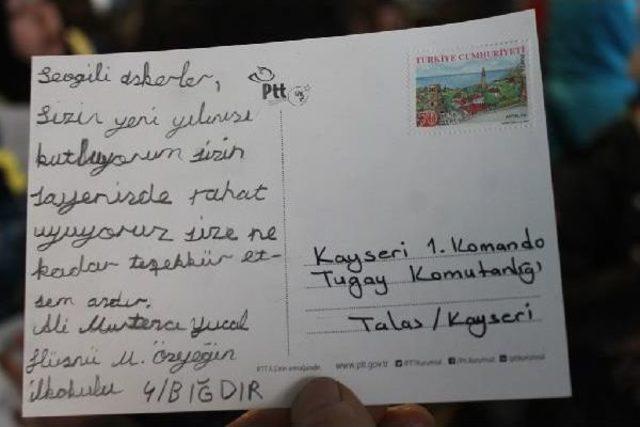 Sevgili askerler,
sizin yeni yılınısı
kutluyorum sizin
sayenizde rahat
uyuyoruz size ne
kadar teşekkür et-
sem azdır.
Ali Murteza Yücal
Hüsnü M. Özyeğin
ilkokulu 4/B IĞDIR
Ptt
TÜRKİYE CUMHURİYETİ
ANTALYA
Kayseri 1. Komando
Tugay Komutanlığı
Talas/Kayseri
www.ptt.gov.tr